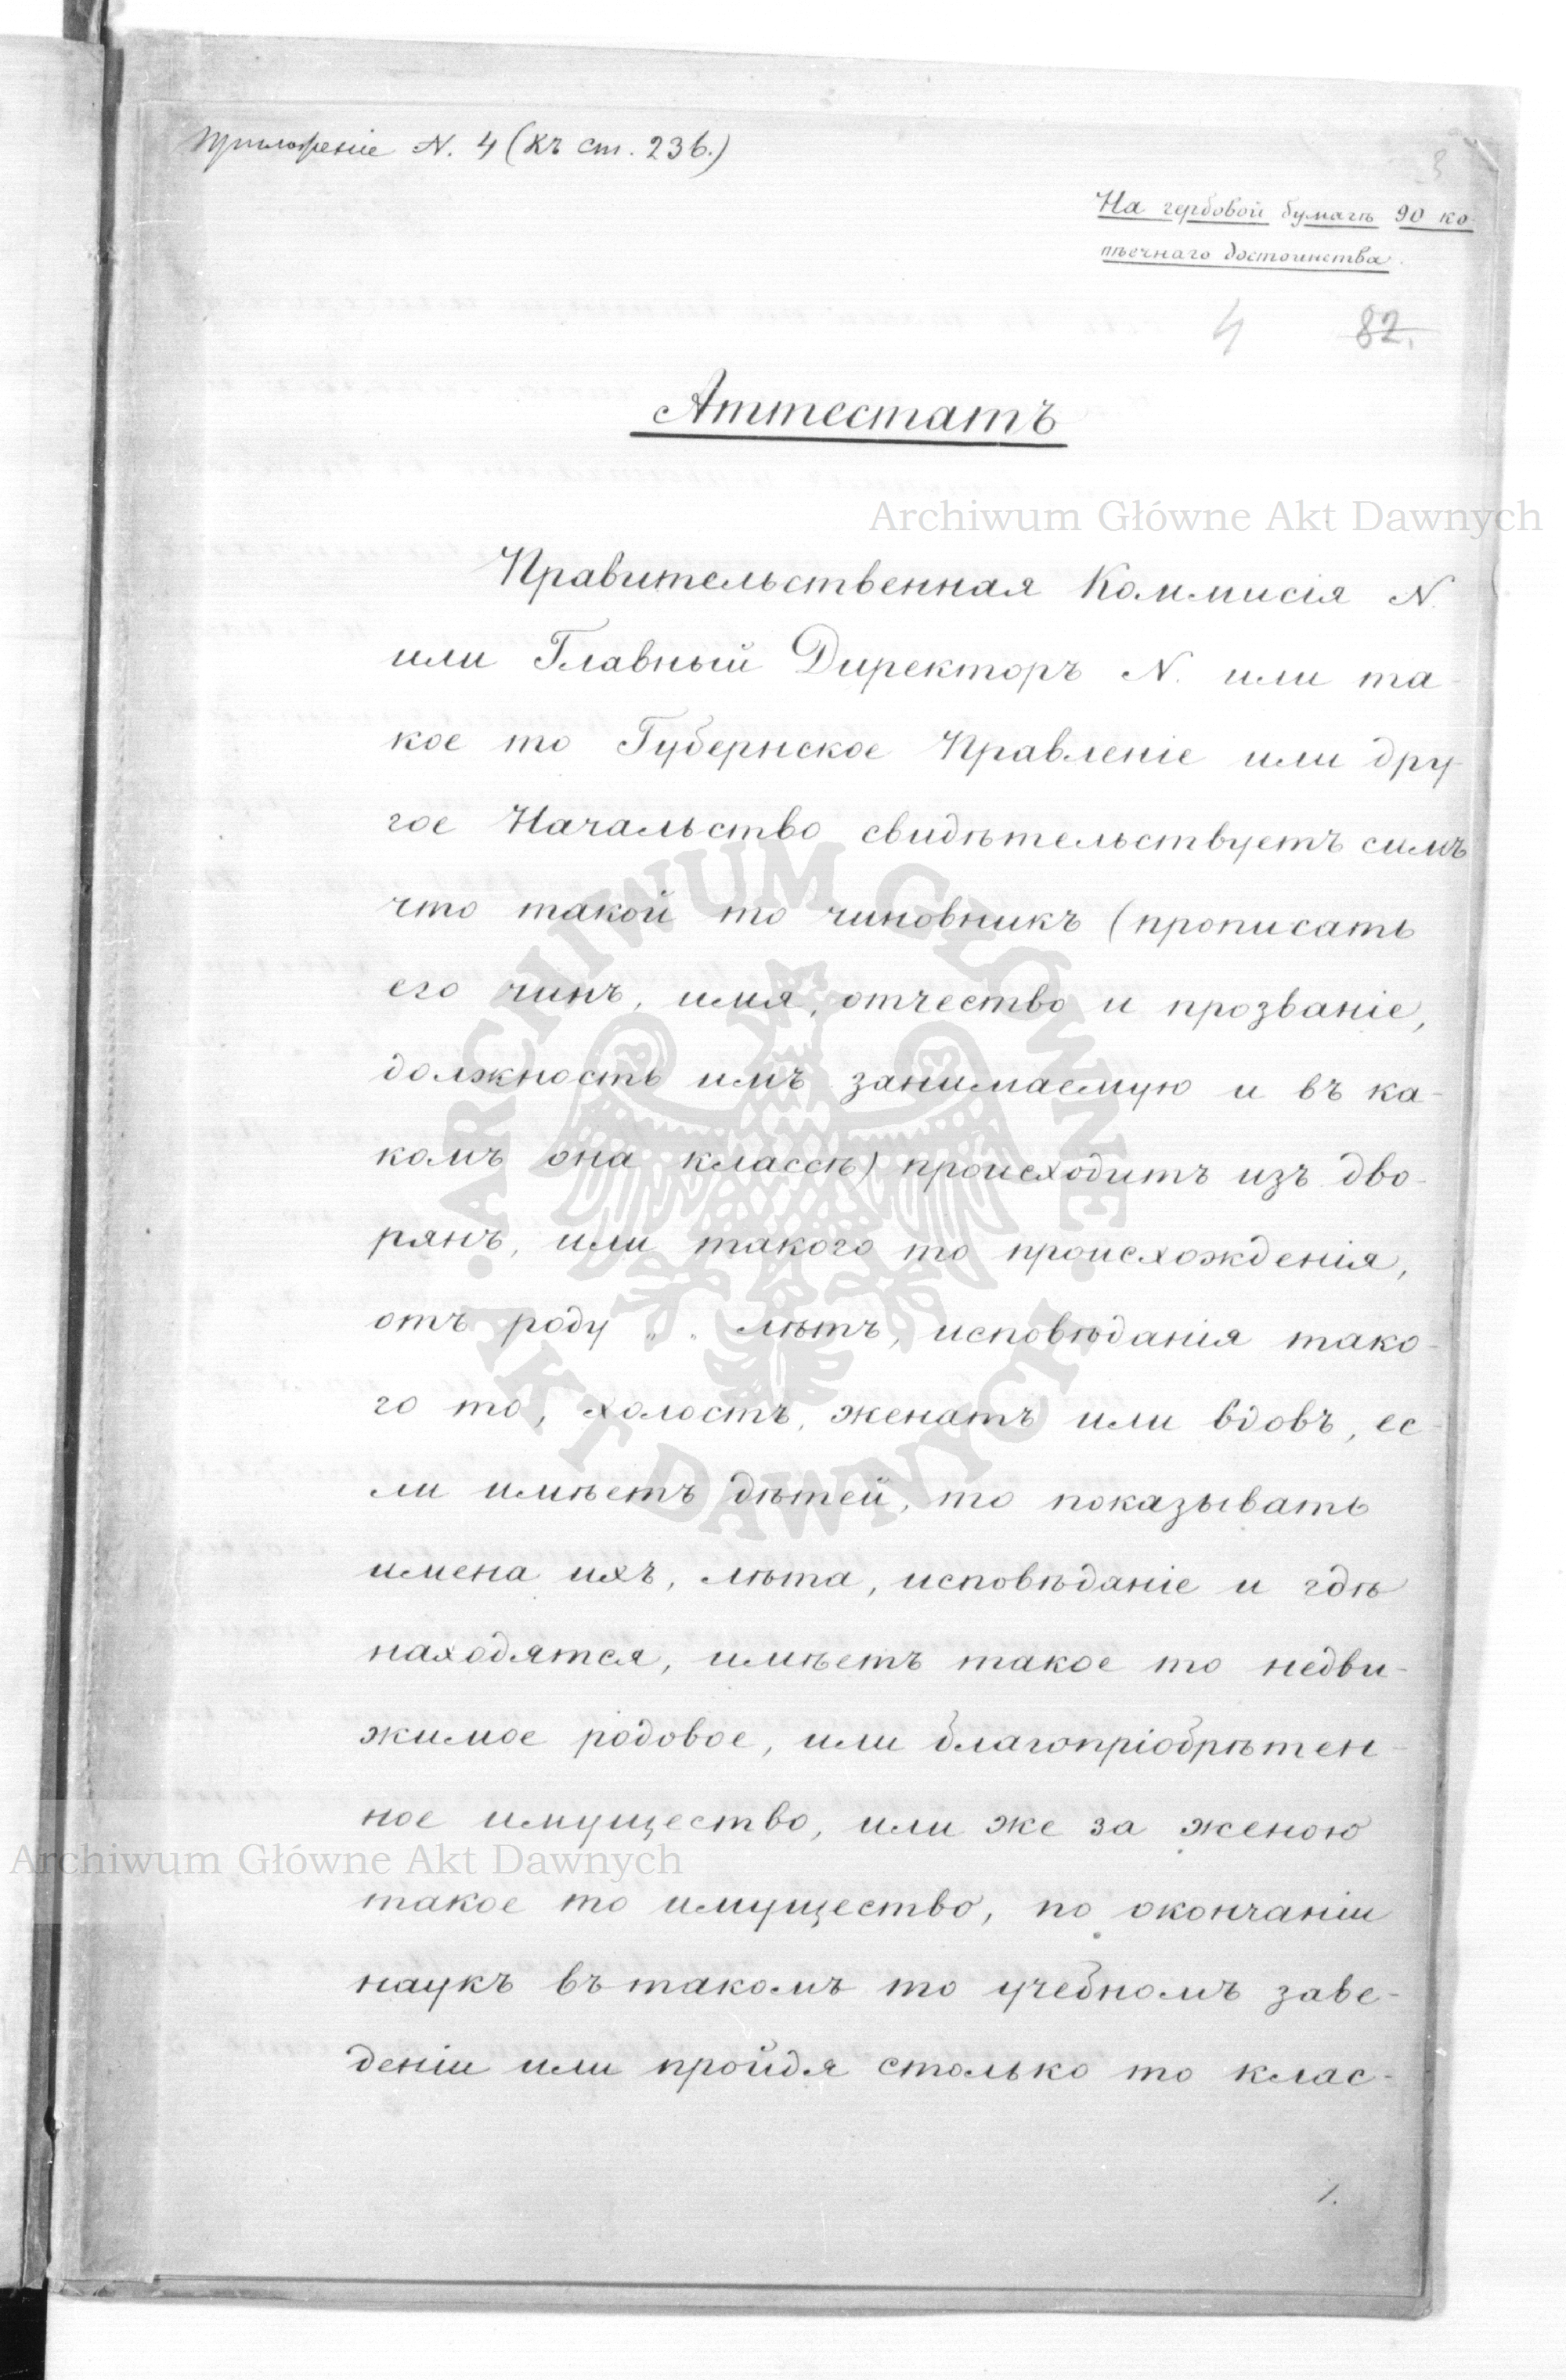 Приложеніе N. 4 (къ ст. 236.)
3
На гербовой бумагѣ 90 ко-
пѣечнаго достоинства.
4 82.
Аттестатъ
Archiwum Główne Akt Dawnych
Правительственная Коммисія N.
или Главный Директоръ N. или та-
кое то Губернское Правленіе или дру-
гое Начальство свидѣтельствуетъ симъ
что такой то чиновникъ (прописать
его чинъ, имя, отчество и прозваніе,
должность имъ занимаемую и въ ка-
комъ она классѣ) происходитъ изъ дво-
рянъ, или такого то происхожденія,
отъ роду " " лѣтъ, исповѣданія тако-
го то, холостъ, женатъ или вдовъ, ес-
ли имѣетъ дѣтей, то показывать
имена ихъ, лѣта, исповѣданіе и гдѣ
находятся, имѣетъ такое то недви-
жимое родовое, или благопріобрѣтен-
ное имущество, или же за женою
Archiwum Główne Akt Dawnych
такое то имущество, по окончаніи
наукъ въ такомъ то учебномъ заве-
деніи или пройдя столько то клас-
1.
ARCHIWUM GŁÓWNE AKT DAWNYCH